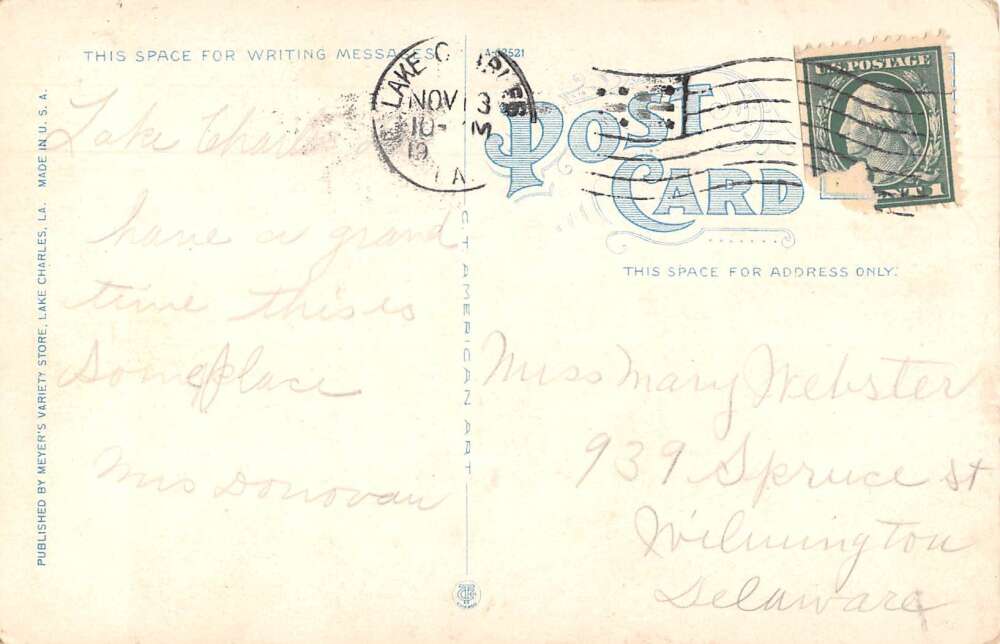 THIS SPACE FOR WRITING MESSAGES
A-63521
LAKE CHARLES
NOV 13
10-
M
19
LA
U.S. POSTAGE
CT. 1
POST
CARD
THIS SPACE FOR ADDRESS ONLY.
PUBLISHED BY MEYER'S VARIETY STORE, LAKE CHARLES, LA. MADE IN U. S. A.
C. T. AMERICAN ART
Lake Charles
have a grand
time this is
Some place
Mrs Donovan
Miss Mary Webster
939 Spruce st
Wilmington
Delaware